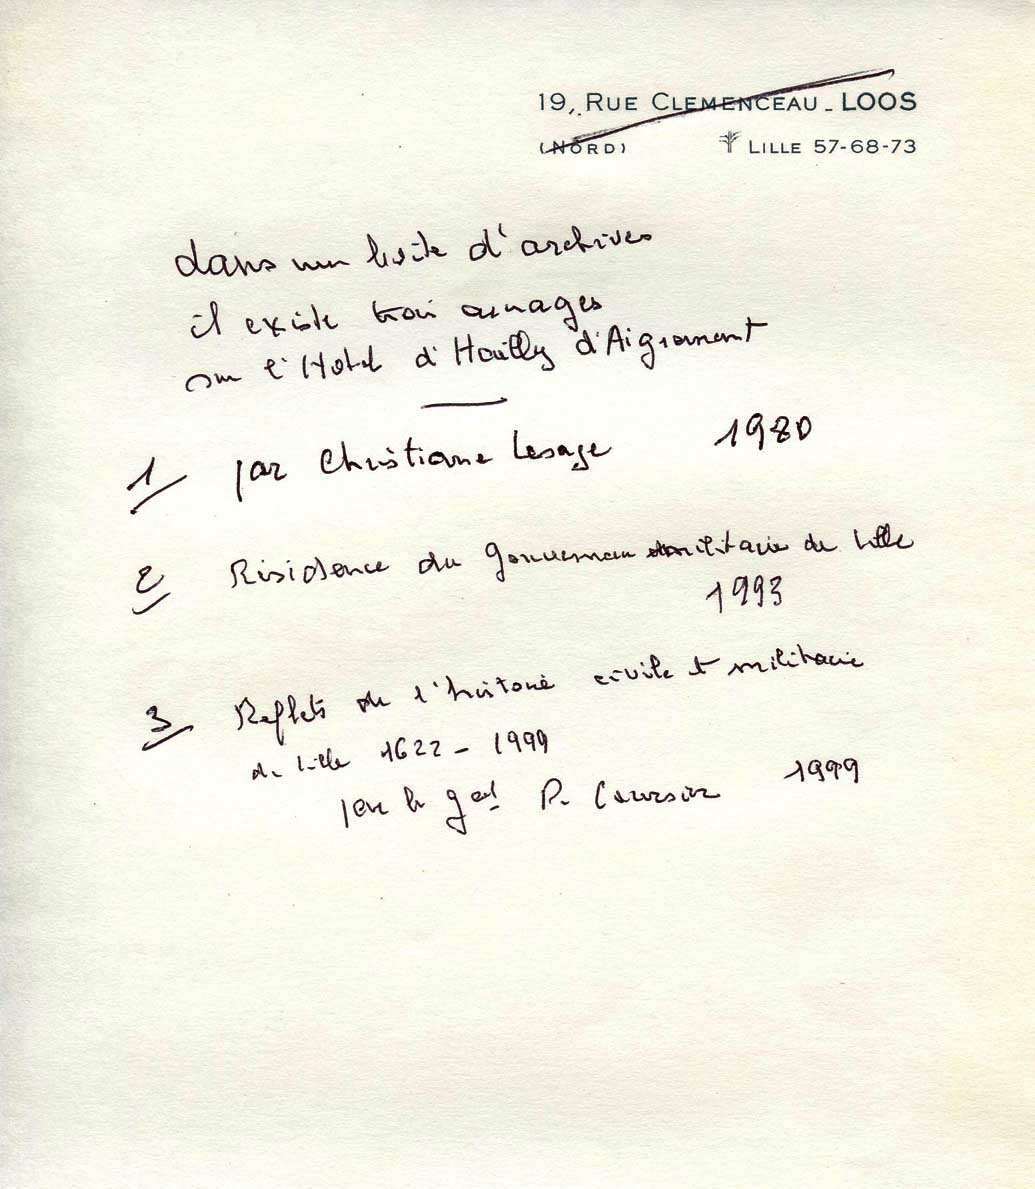 19, RUE CLEMENCEAU - LOOS
(NORD) LILLE 57-68-73
dans une boite d'archives
il existe trois ouvrages
sur l'Hotel d'Hailly d'Aigremont
1 par Christiane Lesage 1980
2 Résidence du gouverneur militaire de Lille
1993
3 Reflets de l'histoire civile et militaire
de Lille 1622 - 1999
par le gal P. 1999